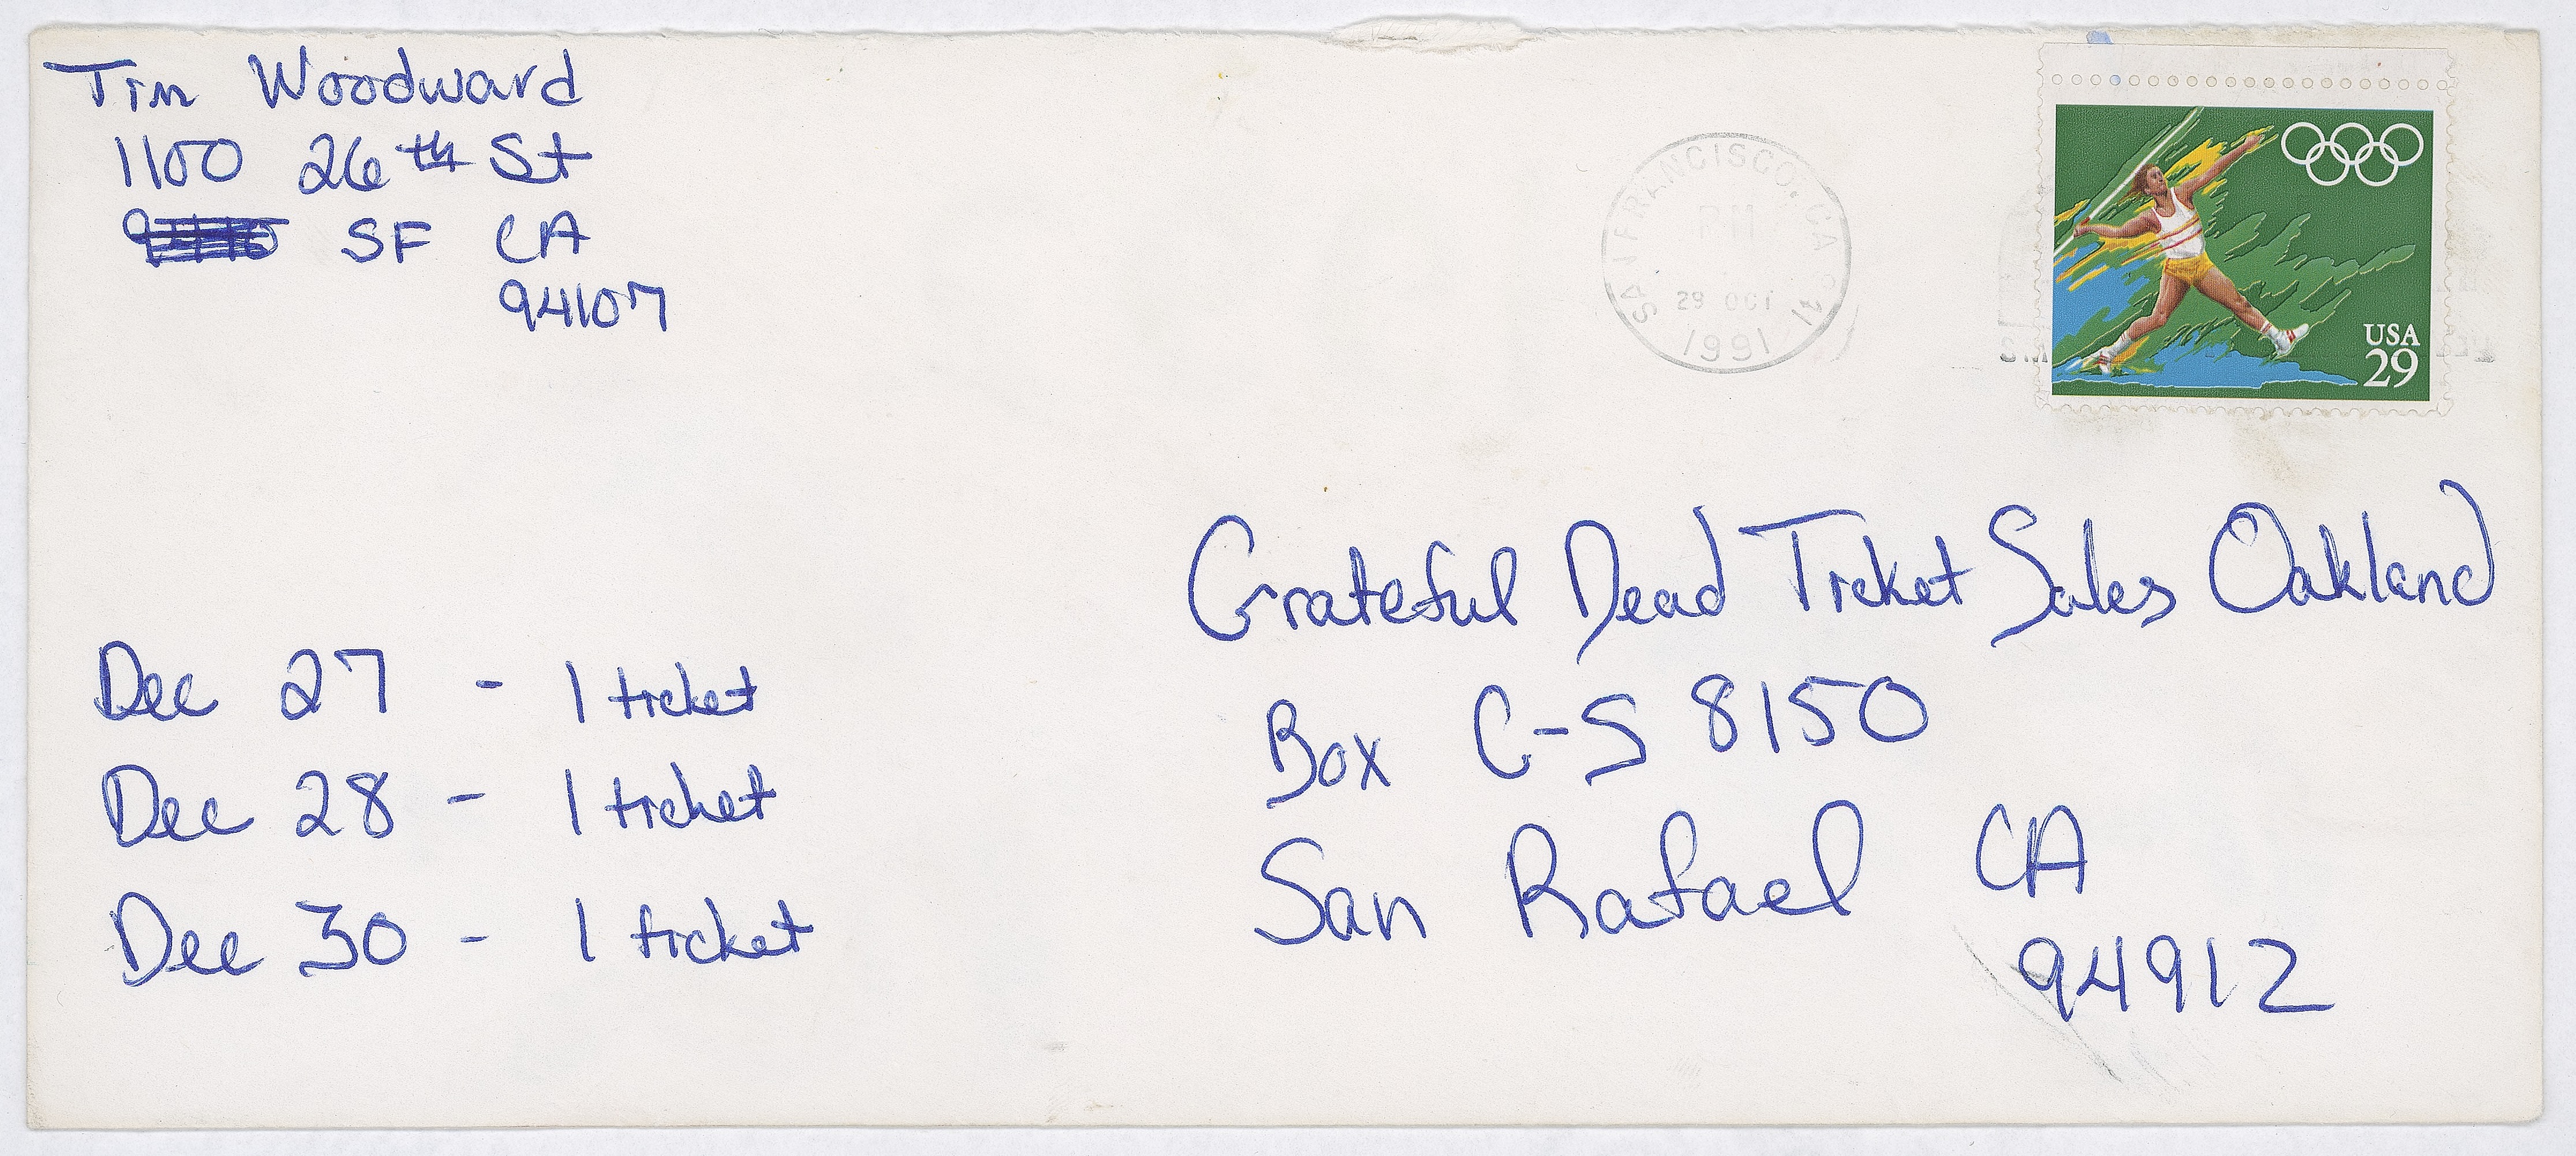 Tim Woodward
1100 26th St
SF CA
94107
SAN FRANCISCO, CA
PM
29 OCT
1991
USA
29
Grateful Dead Ticket Sales Oakland
Box C-S 8150
San Rafael CA
94912
Dec 27 - 1 ticket
Dec 28 - 1 ticket
Dec 30 - 1 ticket